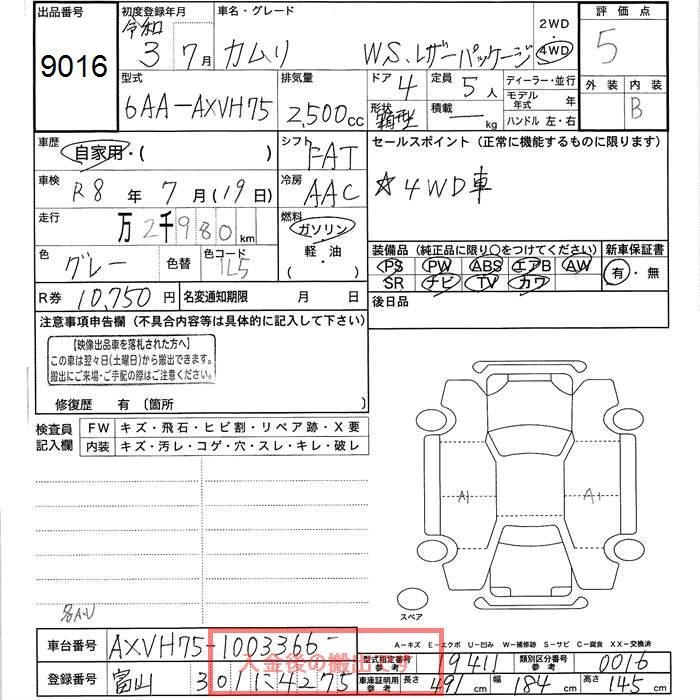 出品番号 初度登録年月 車名・グレード 2WD 評価点
9016 令和 3年 7月 カムリ WS、レザーパッケージ 4WD 5
型式 排気量 ドア 4 定員 5人 ディーラー・並行 外装 内装
6AA-AXVH75 2,500cc 形状 箱型 積載 ― kg モデル年式 年 B
ハンドル 左・右
車歴 自家用・( ) シフト FAT セールスポイント(正常に機能するものに限ります)
車検 R8年 7月(19日) 冷房 AAC ☆4WD車
走行 万2千980km 燃料 ガソリン
色 グレー 色替 色コード 1L5 軽・油 装備品(純正品に限り○をつけてください) 新車保証書
( ・ ) PS PW ABS エアB AW 有・無
R券 10,750円 名変通知期限 月 日 SR ナビ TV カワ
後日品
注意事項申告欄(不具合内容等は具体的に記入して下さい)
【映像出品車を落札された方へ】
この車は翌々日(土曜日)から搬出できます。
搬出にご来場・ご手配の際はご注意ください。
修復歴 有〔箇所 〕
検査員記入欄 FW キズ・飛石・ヒビ割・リペア跡・X要
内装 キズ・汚レ・コゲ・穴・スレ・キレ・破レ
A1 A1
スペア
A-キズ E-エクボ U-凹み W-補修跡 S-サビ C-腐食 XX-交換済
車台番号 AXVH75-1003366- 型式指定番号 参考 19411 類別区分番号 参考 0016
入金後の搬出です
登録番号 富山 301 に 4275 車庫証明用 参考 長さ 491cm 幅 184cm 高さ 145cm